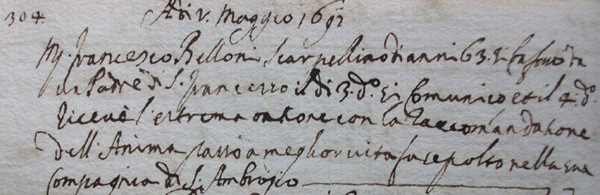 304 Adi v. Maggio 1692
Mr. francesco Belloni, scarpellino di anni 63. si confessò da
un Padre di S. francesco il di 3. do. si Comunicò et il 4. do
riceve l'estrema ontione con la raccomandatione
dell'Anima passò a meglior vita fu sepolto nella sua
Compagnia di S. Ambrogio